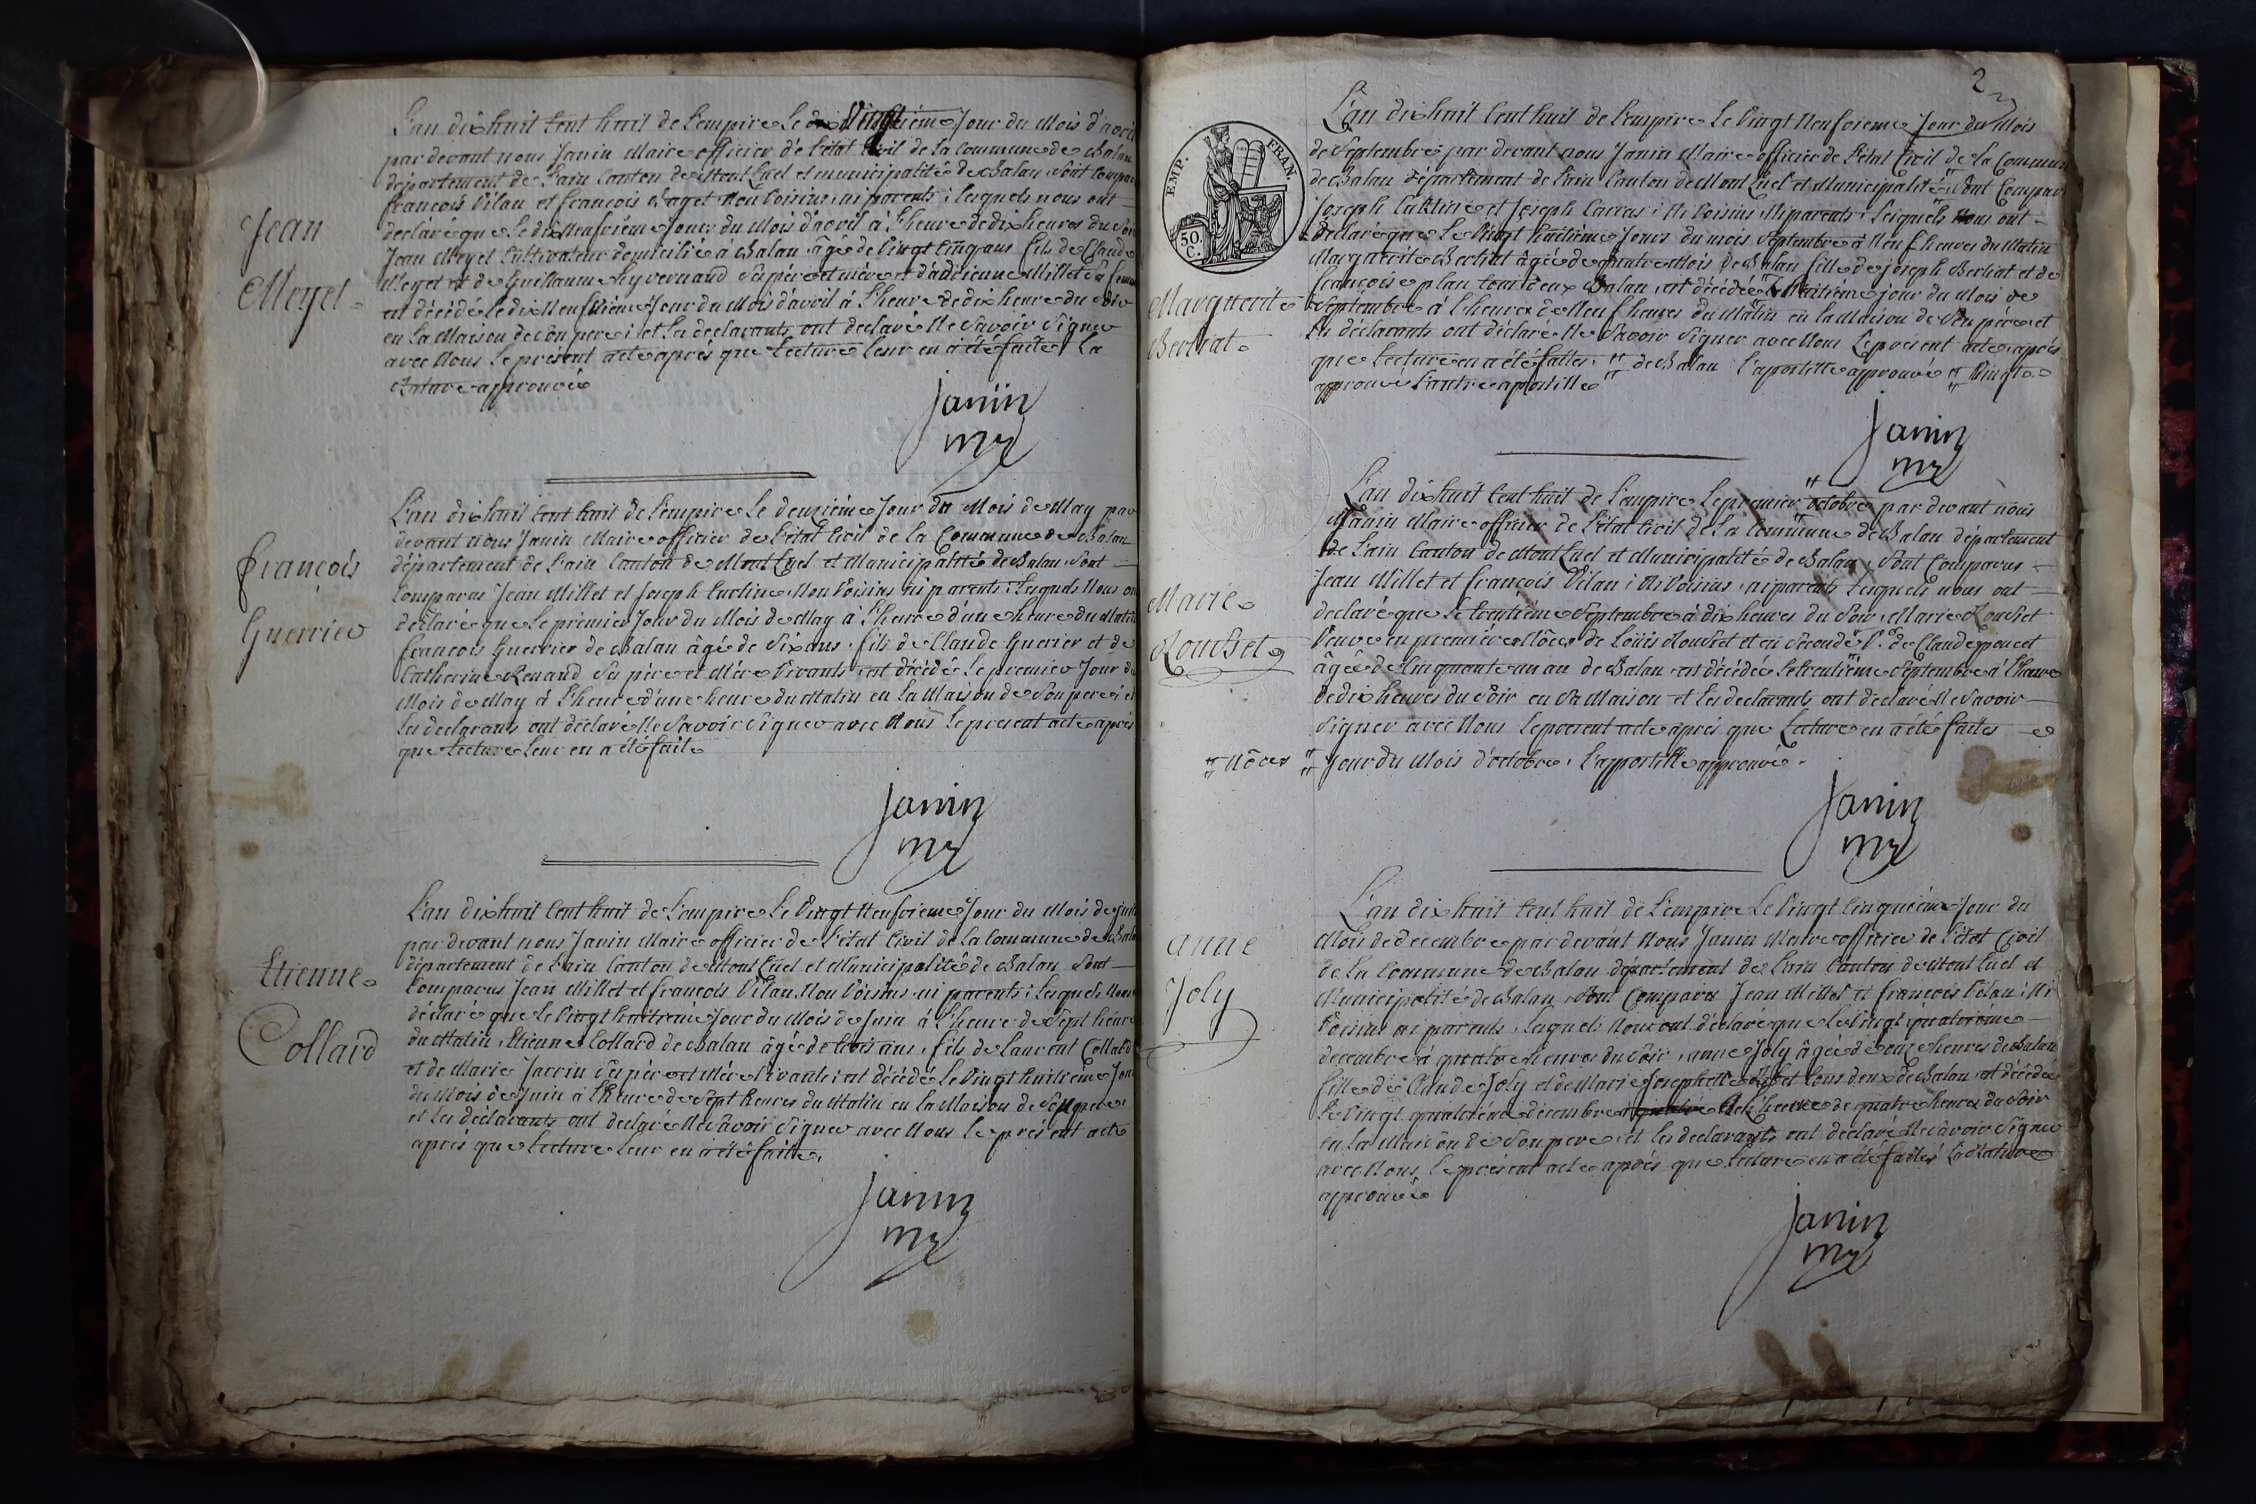 Jean
Meyet
L'an dix huit cent huit de l'empire le Vingtième Jour du Mois d'avril
par devant nous Janin Maire officier de l'état Civil de la Commune de Balan
département de l'ain Canton de Mont Luel et municipalité de Balan, Sont Compar
françois Vilan et françois Non Voisins, ni parents ; lesquels nous ont
declaré que le dix Neufvième Jour du Mois d'avril à l'heure de dix heures du Soir
Jean Meyet Cultivateur domicilié à Balan âgé de Vingt Cinq ans fils de Claude
Meyet et de Guillaume Vyvernaud Ses père et mère et d'adrienne Millet Sa femme
est décédé le dix Neufvième Jour du Mois d'avril à l'heure de dix heure du Soir
en la Maison de Son père ; et les declarants ont declaré Ne Savoir Signer
avec Nous le présent acte après que lecture leur en a été faite, La
Rature approuvée
Janin
mr
françois
Guerrier
L'an dix huit cent huit de l'empire le deuxième Jour du Mois de May par
devant nous Janin Maire officier de l'état Civil de la Commune de Balan
département de l'ain Canton de Mont Luel et Municipalité de Balan, Sont
Comparus Jean Millet et Joseph Non Voisins ni parents ; lesquels Nous on
déclaré que le premier Jour du Mois de May à l'heure d'une heure du Matin
françois Guerrier de Balan âgé de Six ans, fils de Claude Guerier et de
Catherine Renard Ses père et Mère Vivants, est décédé le premier Jour du
Mois de May à l'heure d'une heure du Matin en la Maison de Son père ; et
les declarans ont déclaré Ne Savoir Signer avec Nous le present acte après
que lecture leur en a été faite
Janin
mr
Etienne
Collard
L'an dix huit Cent huit de l'empire le Vingt Neufvieme Jour du Mois de Juin
par devant nous Janin Maire officier de l'état Civil de la Commune de Bala
département de l'ain Canton de Mont Luel et Municipalité de Balan Sont
Comparus Jean Millet et françois Vilan Non Voisins ni parents ; lesquels Nous
déclaré que le Vingt huitieme Jour du Mois de Juin à l'heure de Sept heure
du Matin, Etienne Collard de Balan âgé de trois ans, fils de Laurent Collard
et de Marie Jacrin Ses père et Mère Vivants ; est décédé le Vingt huitième Jour
du Mois de Juin à l'heure de Sept heures du Matin en la Maison de Son pere
et les déclarants ont declaré Ne Savoir Signer avec Nous le présent acte
après que lecture leur en a été faite,
Janin
mr
2
EMP. FRAN.
50. C.
Marguerite
Berliat
L'an dix huit Cent huit de l'empire le Vingt Neufvieme Jour du Mois
de Septembre par devant nous Janin Maire officier de l'état Civil de la Commun
de Balan département de l'ain Canton de Mont Luel et Municipalité Sont Compar
Joseph et Joseph Carras ; Ni Voisins, Ni parents ; lesquels Nous ont
déclaré que le Vingt huitième Jours du mois Septembre à Neuf heures du Matin
Marguerite Berliat âgée de quatre Mois de Balan fille de Joseph Berliat et de
françoise plan tous deux Balan, est décédée le huitiéme jour du Mois de
Septembre à l'heure de Neuf heures du Matin en la Maison de Son père et
les déclarants ont déclaré Ne Savoir Signer avec Nous le present acte, après
que lecture en a été faites. de Balan l'apostille approuvé Vingt
approuvé l'autre apostille
Janin
mr
Marie
Rousset
L'an dix huit Cent huit de l'empire le premier octobre par devant nous
Janin Maire officier de l'état Civil de la Commune de Balan département
de l'ain Canton de Mont Luel et Municipalité de Balan, Sont Comparus
Jean Millet et françois Vilan ; Ni Voisins, ni parents lesquels nous ont
declaré que le trentième Septembre à dix heures du Soir, Marie Rousset
Veuve en premiere Nôces de Loüis Rousset et en Seconde V.e de Claude poncet
âgée de Cinquante un an de Balan est décédée le trentième Septembre à l'heure
de dix heures du Soir en Sa Maison et les declarants ont declaré Ne Savoir
Signer avec Nous le present acte après que Lecture en a été faites
Nôces Jour du Mois d'octobre, l'appostille approuvé.
Janin
mr
anne
Joly
L'an dix huit Cent huit de l'empire le Vingt Cinquième Jour du
Mois de decembre par devant Nous Janin Maire officier de l'état Civil
de la Commune de Balan département de l'ain Canton de Mont Luel et
Municipalité de Balan, Sont Comparus Jean Millet et françois Vilan ; Ni
Voisins ni parents, lesquels Nous ont déclaré que le Vingt quatrieme
decembre à quatre heures du Soir, anne Joly âgée de onze heures de Balan
fille de Claude Joly et de Marie Josephette tous deux de Balan est décédée
le Vingt quatrième decembre à l'heure de quatre heures du Soir
en la Maison de Son pere, et les declarants ont déclaré Ne Savoir Signer
avec Nous le présent acte après que lecture en a été faites La Rature
approuvée
Janin
mr